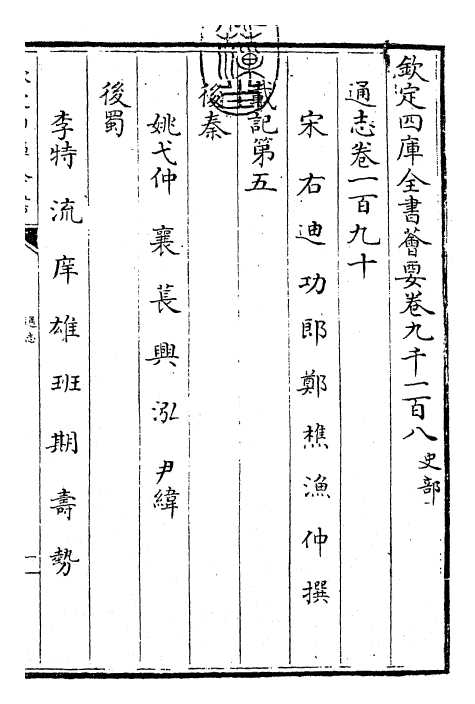 欽定四庫全書薈要卷九千一百八 史部
通志卷一百九十
宋右迪功郎鄭樵漁仲撰
載記第五
後秦
姚弋仲 襄 萇 興 泓 尹緯
後蜀
李特 流 庠 雄 班 期 壽 勢
通志
一